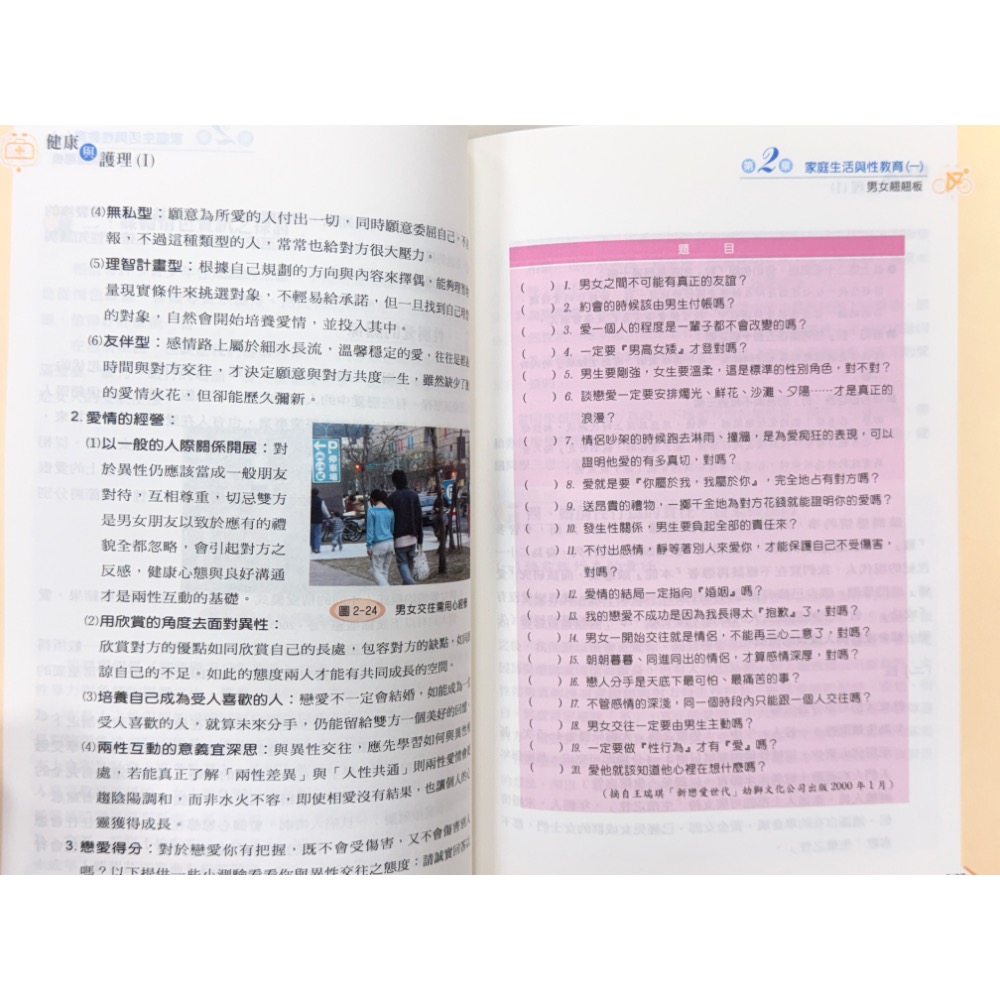 健康與護理(I)
⑷無私型：願意為所愛的人付出一切，同時願意委屈自己，不
報，不過這種類型的人，常常也給對方很大壓力。
⑸理智計畫型：根據自己規劃的方向與內容來擇偶，能夠理
量現實條件來挑選對象，不輕易給承諾，但一旦找到自己
的對象，自然會開始培養愛情，並投入其中。
⑹友伴型：感情路上屬於細水長流，溫馨穩定的愛，往往是
時間與對方交往，才決定願意與對方共度一生，雖然缺少了
的愛情火花，但卻能歷久彌新。
2. 愛情的經營：
⑴以一般的人際關係開展：對
於異性仍應該當成一般朋友
對待，互相尊重，切忌雙方
是男女朋友以致於應有的禮
貌全都忽略，會引起對方之
反感，健康心態與良好溝通
才是兩性互動的基礎。
圖 2-24 男女交往需用心經營
⑵用欣賞的角度去面對異性：
欣賞對方的優點如同欣賞自己的長處，包容對方的缺點，如同
諒自己的不足，如此的態度兩人才能有共同成長的空間。
⑶培養自己成為受人喜歡的人：戀愛不一定會結婚，如能成為一
受人喜歡的人，就算未來分手，仍能留給雙方一個美好的回憶
⑷兩性互動的意義宜深思：與異性交往，應先學習如何與異性
處，若能真正了解「兩性差異」與「人性共通」則兩性愛情會
趨陰陽調和，而非水火不容，即使相愛沒有結果，也讓個人的心
靈獲得成長。
3. 戀愛得分：對於戀愛你有把握，既不會受傷害，又不會傷害別人
嗎？以下提供一些小測驗看看你與異性交往之態度：請誠實回答
第2章 家庭生活與性教育(一)
男女翹翹板
題 目
( ) 1. 男女之間不可能有真正的友誼？
( ) 2. 約會的時候該由男生付帳嗎？
( ) 3. 愛一個人的程度是一輩子都不會改變的嗎？
( ) 4. 一定要『男高女矮』才登對嗎？
( ) 5. 男生要剛強，女生要溫柔，這是標準的性別角色，對不對？
( ) 6. 談戀愛一定要安排燭光、鮮花、沙灘、夕陽……才是真正的
浪漫？
( ) 7. 情侶吵架的時候跑去淋雨、撞牆，是為愛痴狂的表現，可以
證明他愛的有多真切，對嗎？
( ) 8. 愛就是要『你屬於我，我屬於你』，完全地占有對方嗎？
( ) 9. 送昂貴的禮物，一擲千金地為對方花錢就能證明你的愛嗎？
( ) 10. 發生性關係，男生要負起全部的責任來？
( ) 11. 不付出感情，靜等著別人來愛你，才能保護自己不受傷害，
對嗎？
( ) 12. 愛情的結局一定指向『婚姻』嗎？
( ) 13. 我的戀愛不成功是因為我長得太『抱歉』了，對嗎？
( ) 14. 男女一開始交往就是情侶，不能再三心二意了，對嗎？
( ) 15. 朝朝暮暮、同進同出的情侶，才算感情深厚，對嗎？
( ) 16. 戀人分手是天底下最可怕、最痛苦的事？
( ) 17. 不管感情的深淺，同一個時段內只能跟一個人交往嗎？
( ) 18. 男女交往一定要由男生主動嗎？
( ) 19. 一定要做『性行為』才有『愛』嗎？
( ) 20. 愛他就該知道他心裡在想什麼嗎？
（摘自王瑞琪「新戀愛世代」幼獅文化公司出版 2000 年 1 月）